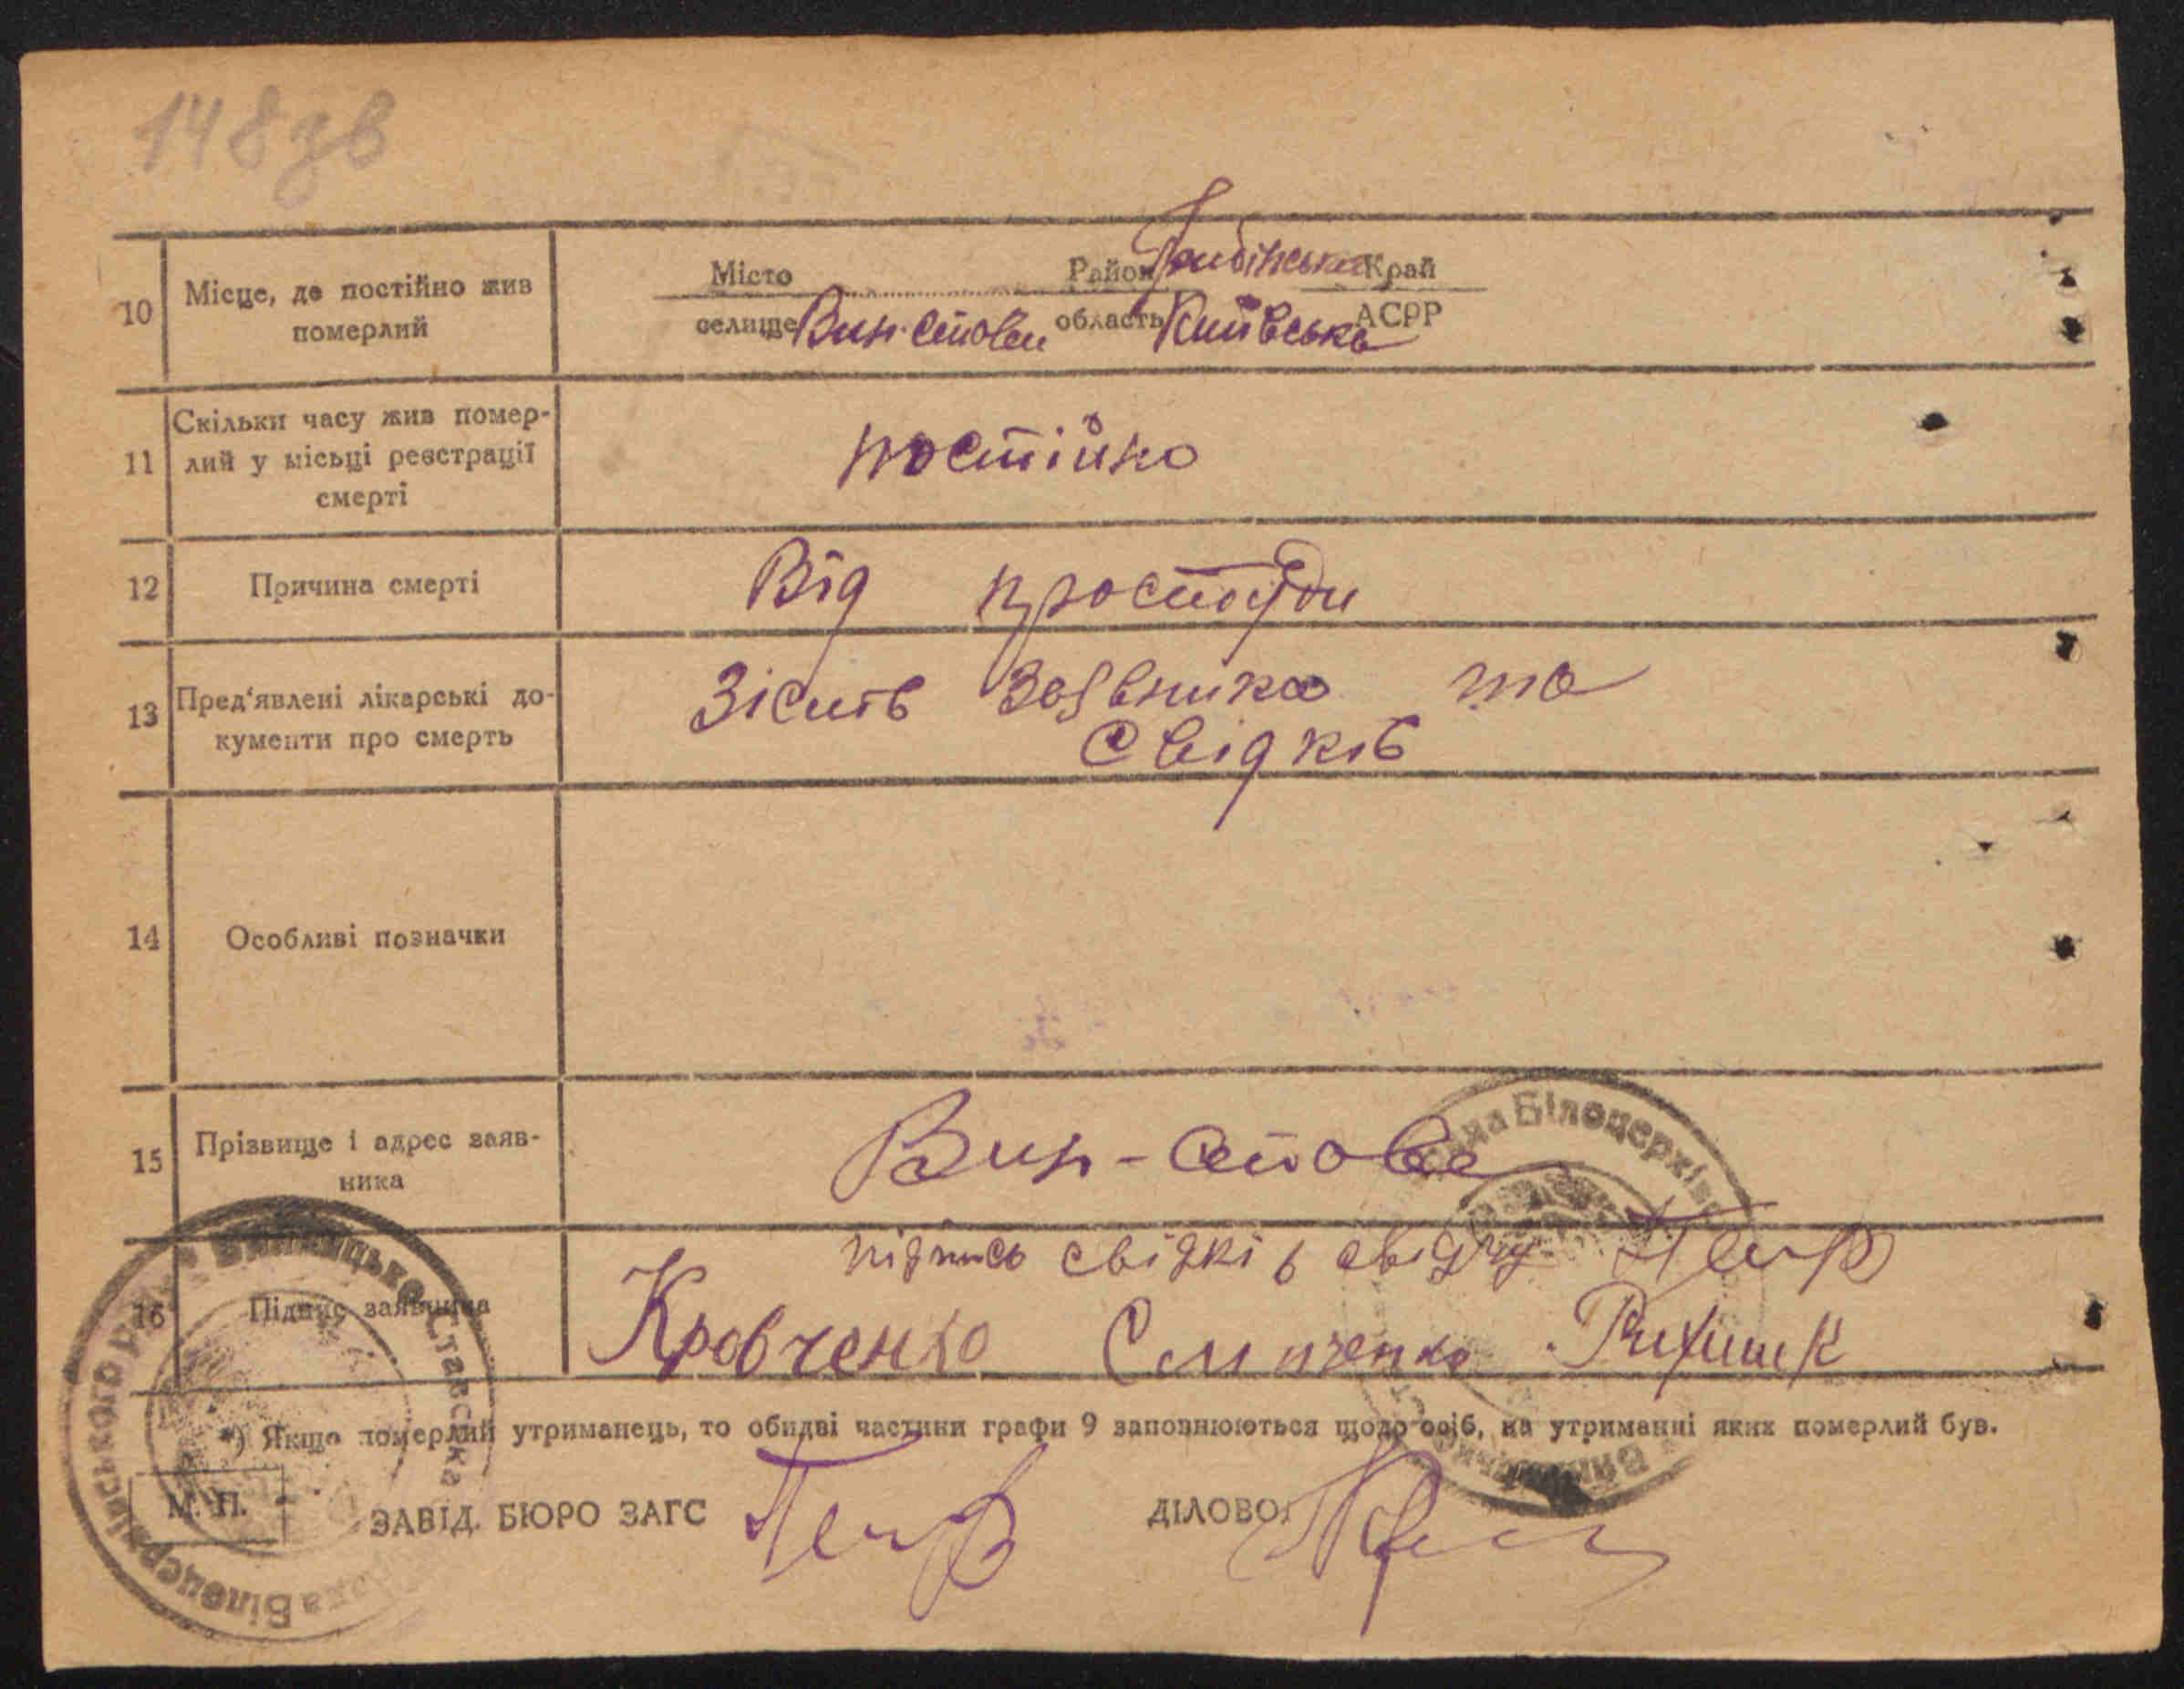 148зв
10 Місце, де постійно жив померлий
Місто Район Край
селище Вин-Стави область Київська АСРР
11 Скільки часу жив помер-
лий у місьці реєстрації
смерті
постійно
12 Причина смерті Від простуди
13 Пред'явлені лікарські до-
кументи про смерть
Зі слів Заявника та
свідків
14 Особливі позначки
15 Прізвище і адрес заяв-
ника
Вин-Стави
16 Підпис заявника
підпись свідків свідчу
Кровченко
*) Якщо померлий утриманець, то обидві частини графи 9 заповнюються щодо осіб, на утриманні яких померлий був.
М. П. ЗАВІД. БЮРО ЗАГС ДІЛОВОД